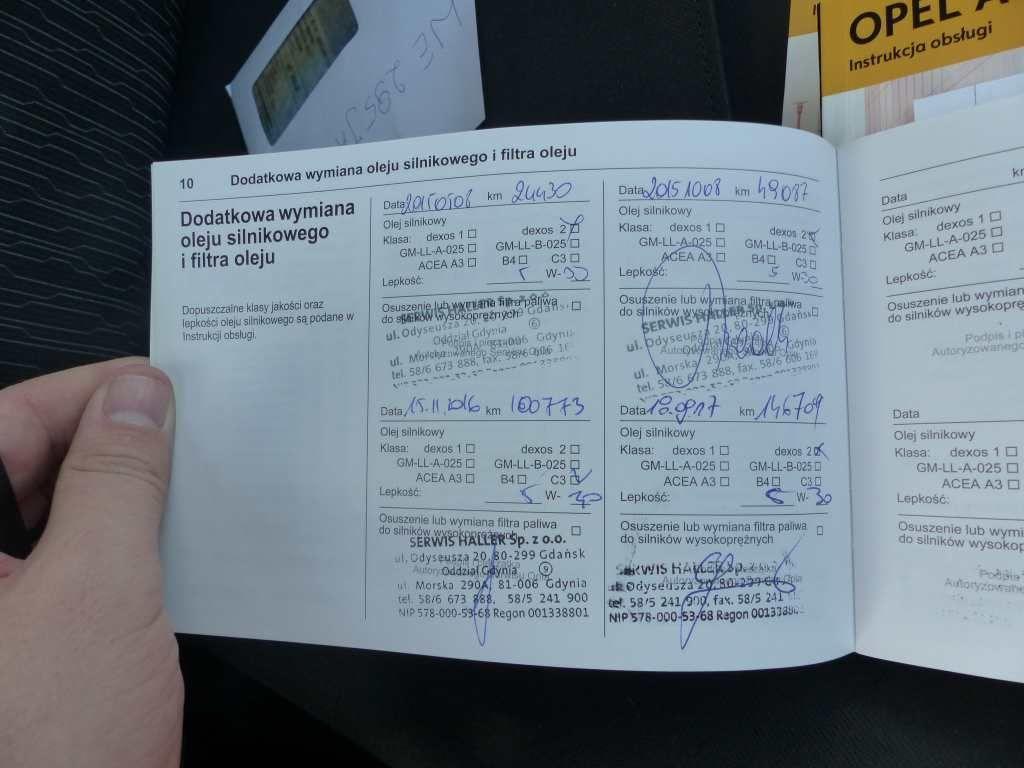 OPEL A
Instrukcja obsługi
10 Dodatkowa wymiana oleju silnikowego i filtra oleju
Dodatkowa wymiana
oleju silnikowego
i filtra oleju
Dopuszczalne klasy jakości oraz
lepkości oleju silnikowego są podane w
Instrukcji obsługi.
Data 20150508 km 24430
Olej silnikowy
Klasa: dexos 1 □ dexos 2 □
GM-LL-A-025 □ GM-LL-B-025 □
ACEA A3 □ B4 □ C3 □
Lepkość: 5 W-30
Osuszenie lub wymiana filtra paliwa □
do silników wysokoprężnych
SERWIS HALLER Sp. z o.o.
ul. Odyseusza 20, 80-299 Gdańsk
Oddział Gdynia 6
ul. Morska 81-006 Gdynia
tel. 58/6 673 888, fax. 58/6 606 16
Data 20151008 km 49087
Olej silnikowy
Klasa: dexos 1 □ dexos 2 □
GM-LL-A-025 □ GM-LL-B-025 □
ACEA A3 □ B4 □ C3 □
Lepkość: 5 W30
Osuszenie lub wymiana filtra paliwa □
do silników wysokoprężnych
SERWIS HALLER Sp. z
ul. Odyseusza 20, 80-299 Gdańsk
ul. Morska
tel. 58/6 673 888, fax. 58/6 606 169
Data 15.11.2016 km 100773
Olej silnikowy
Klasa: dexos 1 □ dexos 2 □
GM-LL-A-025 □ GM-LL-B-025 □
ACEA A3 □ B4 □ C3 □
Lepkość: 5 W-
Osuszenie lub wymiana filtra paliwa □
do silników wysokoprężnych
SERWIS HALLER Sp. z o.o.
ul. Odyseusza 20, 80-299 Gdańsk
Oddział Gdynia 9
ul. Morska 290A, 81-006 Gdynia
tel. 58/6 673 888, 58/5 241 900
NIP 578-000-53-68 Regon 001338801
Data 18.0917 km 146709
Olej silnikowy
Klasa: dexos 1 □ dexos 2 □
GM-LL-A-025 □ GM-LL-B-025 □
ACEA A3 □ B4 □ C3 □
Lepkość: 5 W-30
Osuszenie lub wymiana filtra paliwa □
do silników wysokoprężnych
SERWIS HALLER Sp.
ul. Odyseusza 20, 80-299
tel. 58/5 241 900, fax. 58/5 241
NIP 578-000-53-68 Regon 001338801
Data
Olej silnikowy
Klasa: dexos 1 □
GM-LL-A-025 □
ACEA A3 □
Lepkość:
Osuszenie lub wymian
do silników wysokopr
Podpis i p
Autoryzowanego
Data
Olej silnikowy
Klasa: dexos 1 □
GM-LL-A-025 □
ACEA A3 □
Lepkość:
Osuszenie lub wymian
do silników wysokop
Podpis
Autoryzowane